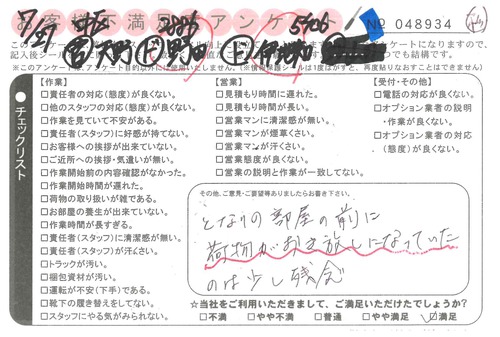 お客様不満足アンケート
No 048934
7/27
記入後シール
※このアンケート
チェックリスト
【作業】
□責任者の対応(態度)が良くない。
□他のスタッフの対応(態度)が良くない。
□作業を見ていて不安がある。
□責任者(スタッフ)に好感が持てない。
□お客様への挨拶が出来ていない。
□ご近所への挨拶・気遣いが無い。
□作業前の内容確認がなかった。
□作業開始時間が遅れた。
□荷物の取り扱いが雑である。
□お部屋の養生が出来ていない。
□作業時間が長すぎる。
□責任者(スタッフ)に清潔感が無い。
□責任者(スタッフ)が汗くさい。
□トラックが汚い。
□梱包資材が汚い。
□運転が不安(下手)である。
□靴下の履き替えをしてない。
□スタッフにやる気がみられない。
【営業】
□見積もり時間に遅れた。
□見積もり時間が長い。
□営業マンに清潔感が無い。
□営業マンが煙草くさい。
□営業マンが汗くさい。
□営業態度が良くない。
□営業の説明と作業が一致してない。
【受付・その他】
□電話の対応が良くない。
□オプション業者の説明
・作業が良くない。
□オプション業者の対応
(態度)が良くない。
その他、ご意見・ご要望等ありましたらお書き下さい。
となりの部屋の前に
荷物がおき放しになっていた
のは少し残念
☆当社をご利用いただきまして、ご満足いただけたでしょうか?
□不満 □やや不満 □普通 □やや満足 ☑満足